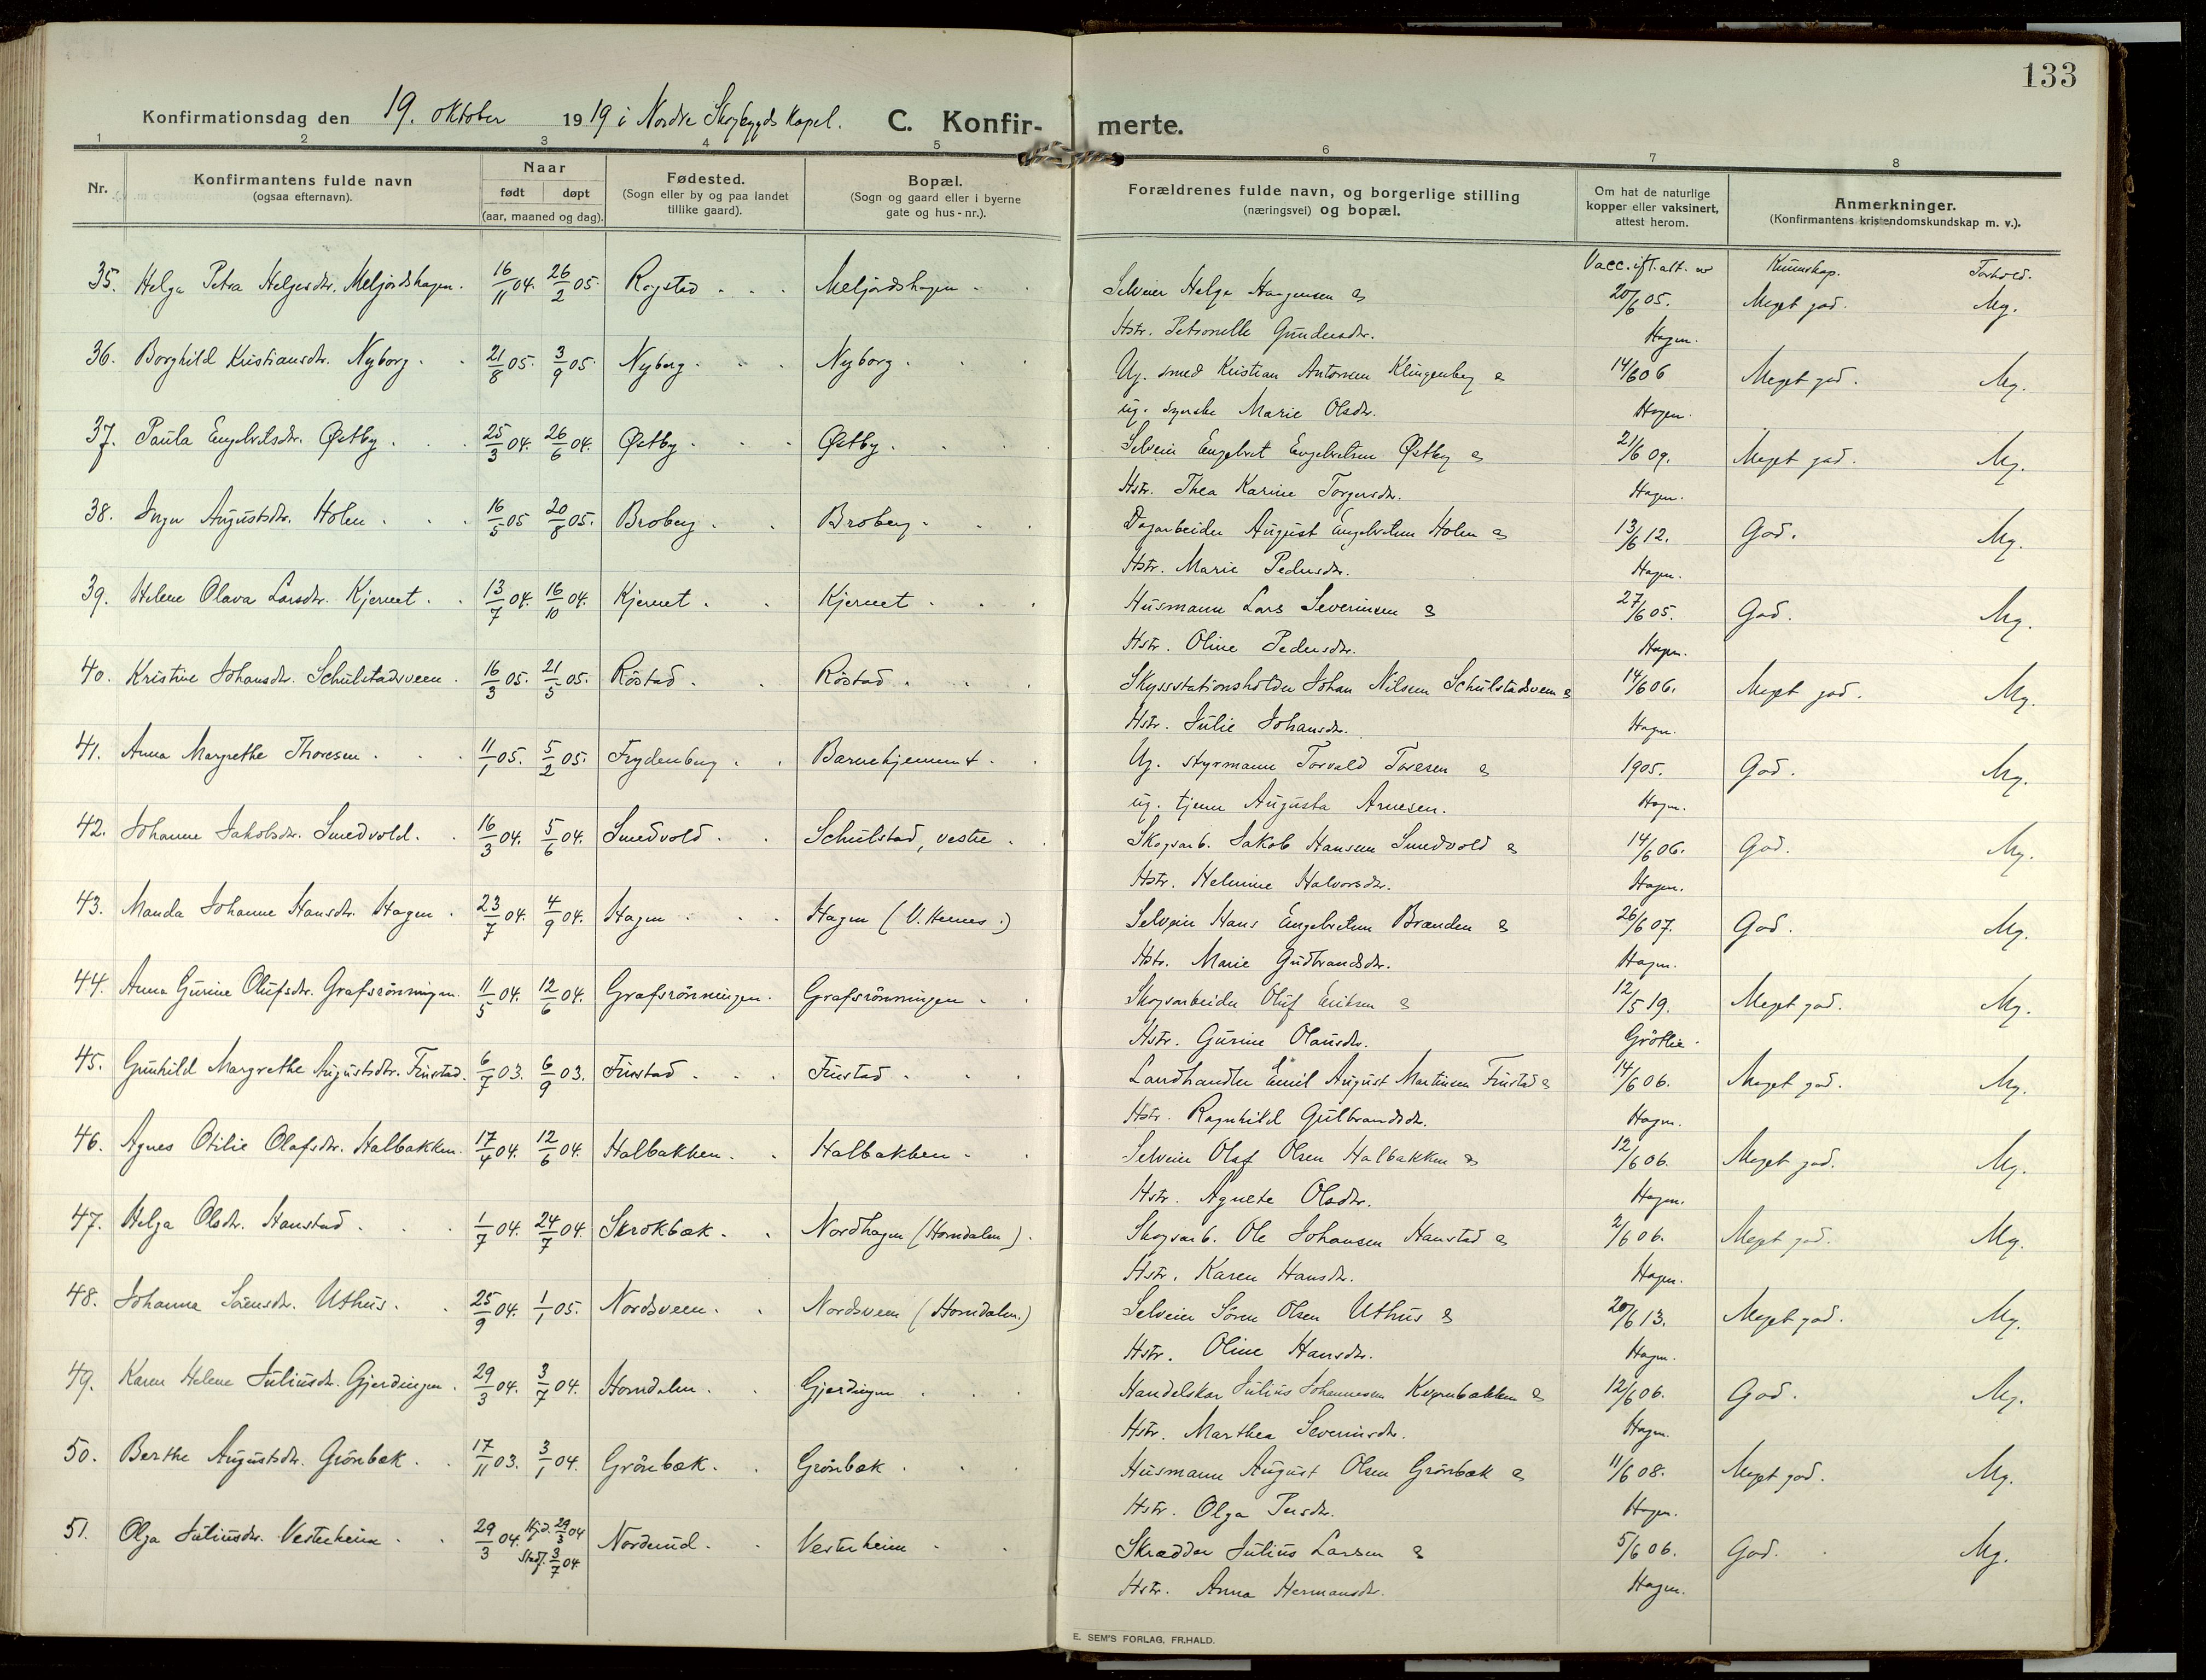 133
Konfirmationsdag den 19. oktober 1919 i Nordre Skogbygds Kapel. C. Konfir- merte.
1 2 3 4 5 6 7 8
Nr. Konfirmantens fulde navn (ogsaa efternavn). Naar født døpt (aar, maaned og dag). Fødested. (Sogn eller by og paa landet tillike gaard). Bopæl. (Sogn og gaard eller i byerne gate og hus-nr.). Forældrenes fulde navn, og borgerlige stilling (næringsvei) og bopæl. Om hat de naturlige kopper eller vaksinert, attest herom. Anmerkninger. (Konfirmantens kristendomskundskap m. v.).
Vacc. ifl. att. av Kunnskap. Forhold.
35. Helga Petra Helgesdtr. Meljordshagen. 16/11 04. 26/2 05. Rogstad Meljordshagen Selveier Helge Haagensen & 20/6 05. Meget god. Mg.
Hstr. Petronelle Gundersdtr. Hagen.
36. Borghild Kristiansdtr. Nyborg. 21/8 05. 3/9 05. Nyborg Nyborg Ug. smed Kristian Antonsen Klingenberg & 14/6 06 Meget god. Mg.
ug. syerske Marie Olsdtr. Hagen.
37. Paula Engebretsdtr. Østby. 25/3 04. 26/6 04. Østby Østby Selveier Engebret Engebretsen Østby & 21/6 09. Meget god. Mg.
Hstr. Thea Karine Torgersdtr. Hagen.
38. Inga Augustsdtr. Holen 16/5 05 20/8 05. Broberg Broberg Dagarbeider August Engebretsen Holen & 13/6 12. God. Mg.
Hstr. Marie Pedersdtr. Hagen.
39. Helene Olava Larsdtr. Kjernet 13/7 04. 16/10 04. Kjernet Kjernet Husmann Lars Severinsen & 27/6 05. God. Mg.
Hstr. Oline Pedersdtr. Hagen.
40. Kristine Johansdtr. Schulstadsveen. 16/3 05. 21/5 05. Röstad Röstad Skyssstationsholder Johan Nilsen Schulstadsveen & 14/6 06. Meget god. Mg.
Hstr. Julie Johansdtr. Hagen.
41. Anna Margrethe Thoresen 11/1 05. 5/2 05. Frydenberg Barnehjemmet Ug. styrmann Torvald Toresen & 1905. God. Mg.
ug. tjener Augusta Arnesen. Hagen.
42. Johanne Jakobsdtr. Smedvold. 16/3 04. 5/6 04. Smedvold Schulstad, vestre Skogsarb. Jakob Hansen Smedvold & 14/6 06. God. Mg.
Hstr. Helmine Halvorsdtr. Hagen.
43. Manda Johanne Hansdtr. Hagen 23/7 04. 4/9 04. Hagen Hagen (V. Hernes.) Selveier Hans Engebretsen Brænden & 26/6 07. God. Mg.
Hstr. Marie Gudbrandsdtr. Hagen.
44. Anna Gurine Olufsdtr. Grafsrönningen. 11/5 04. 12/6 04. Grafsrönningen. Grafsrönningen Skogsarbeider Oluf Eriksen & 12/5 19. Meget god. Mg.
Hstr. Gurine Olausdtr. Grötlie.
45. Gunhild Margrethe Augustsdtr. Finstad. 6/7 03. 6/9 03. Finstad Finstad Landhandler Emil August Martinsen Finstad & 14/6 06. Meget god. Mg.
Hstr. Ragnhild Gulbrandsdtr. Hagen.
46. Agnes Otilie Olafsdtr. Halbakken. 17/4 04. 12/6 04. Halbakken. Halbakken Selveier Olaf Olsen Halbakken & 12/6 06. Meget god. Mg.
Hstr. Agnete Olsdtr. Hagen.
47. Helga Olsdtr. Hanstad 1/7 04. 24/7 04. Skrokbæk Nordhagen (Horndalen). Skogsarb. Ole Johansen Hanstad & 2/6 06. Meget god. Mg.
Hstr. Karen Hansdtr. Hagen.
48. Johanna Sörensdtr. Uthus. 25/9 04. 1/1 05. Nordsveen. Nordsveen (Horndalen.) Selveier Sören Olsen Uthus & 20/6 13. Meget god. Mg.
Hstr. Oline Hansdtr. Hagen.
49. Karen Helene Juliusdtr. Gjerdingen 29/3 04. 3/7 04. Horndalen. Gjerdingen Handelskar Julius Johannesen Kvernbakken & 12/6 06. God. Mg.
Hstr. Marthea Severinsdtr. Hagen.
50. Berthe Augustsdtr. Grönbæk 17/11 03. 3/1 04. Grönbæk. Grönbæk Husmann August Olsen Grönbæk & 11/6 08. Meget god. Mg.
Hstr. Olga Persdtr. Hagen.
51. Olga Juliusdtr. Vesterheim 29/3 04. Hjd. 29/3 04 Stadf. 3/7 04 Norderud. Vesterheim Skrædder Julius Larsen & 5/6 06. God. Mg.
Hstr. Anna Hermansdtr. Hagen.
E. SEM'S FORLAG, FR.HALD.